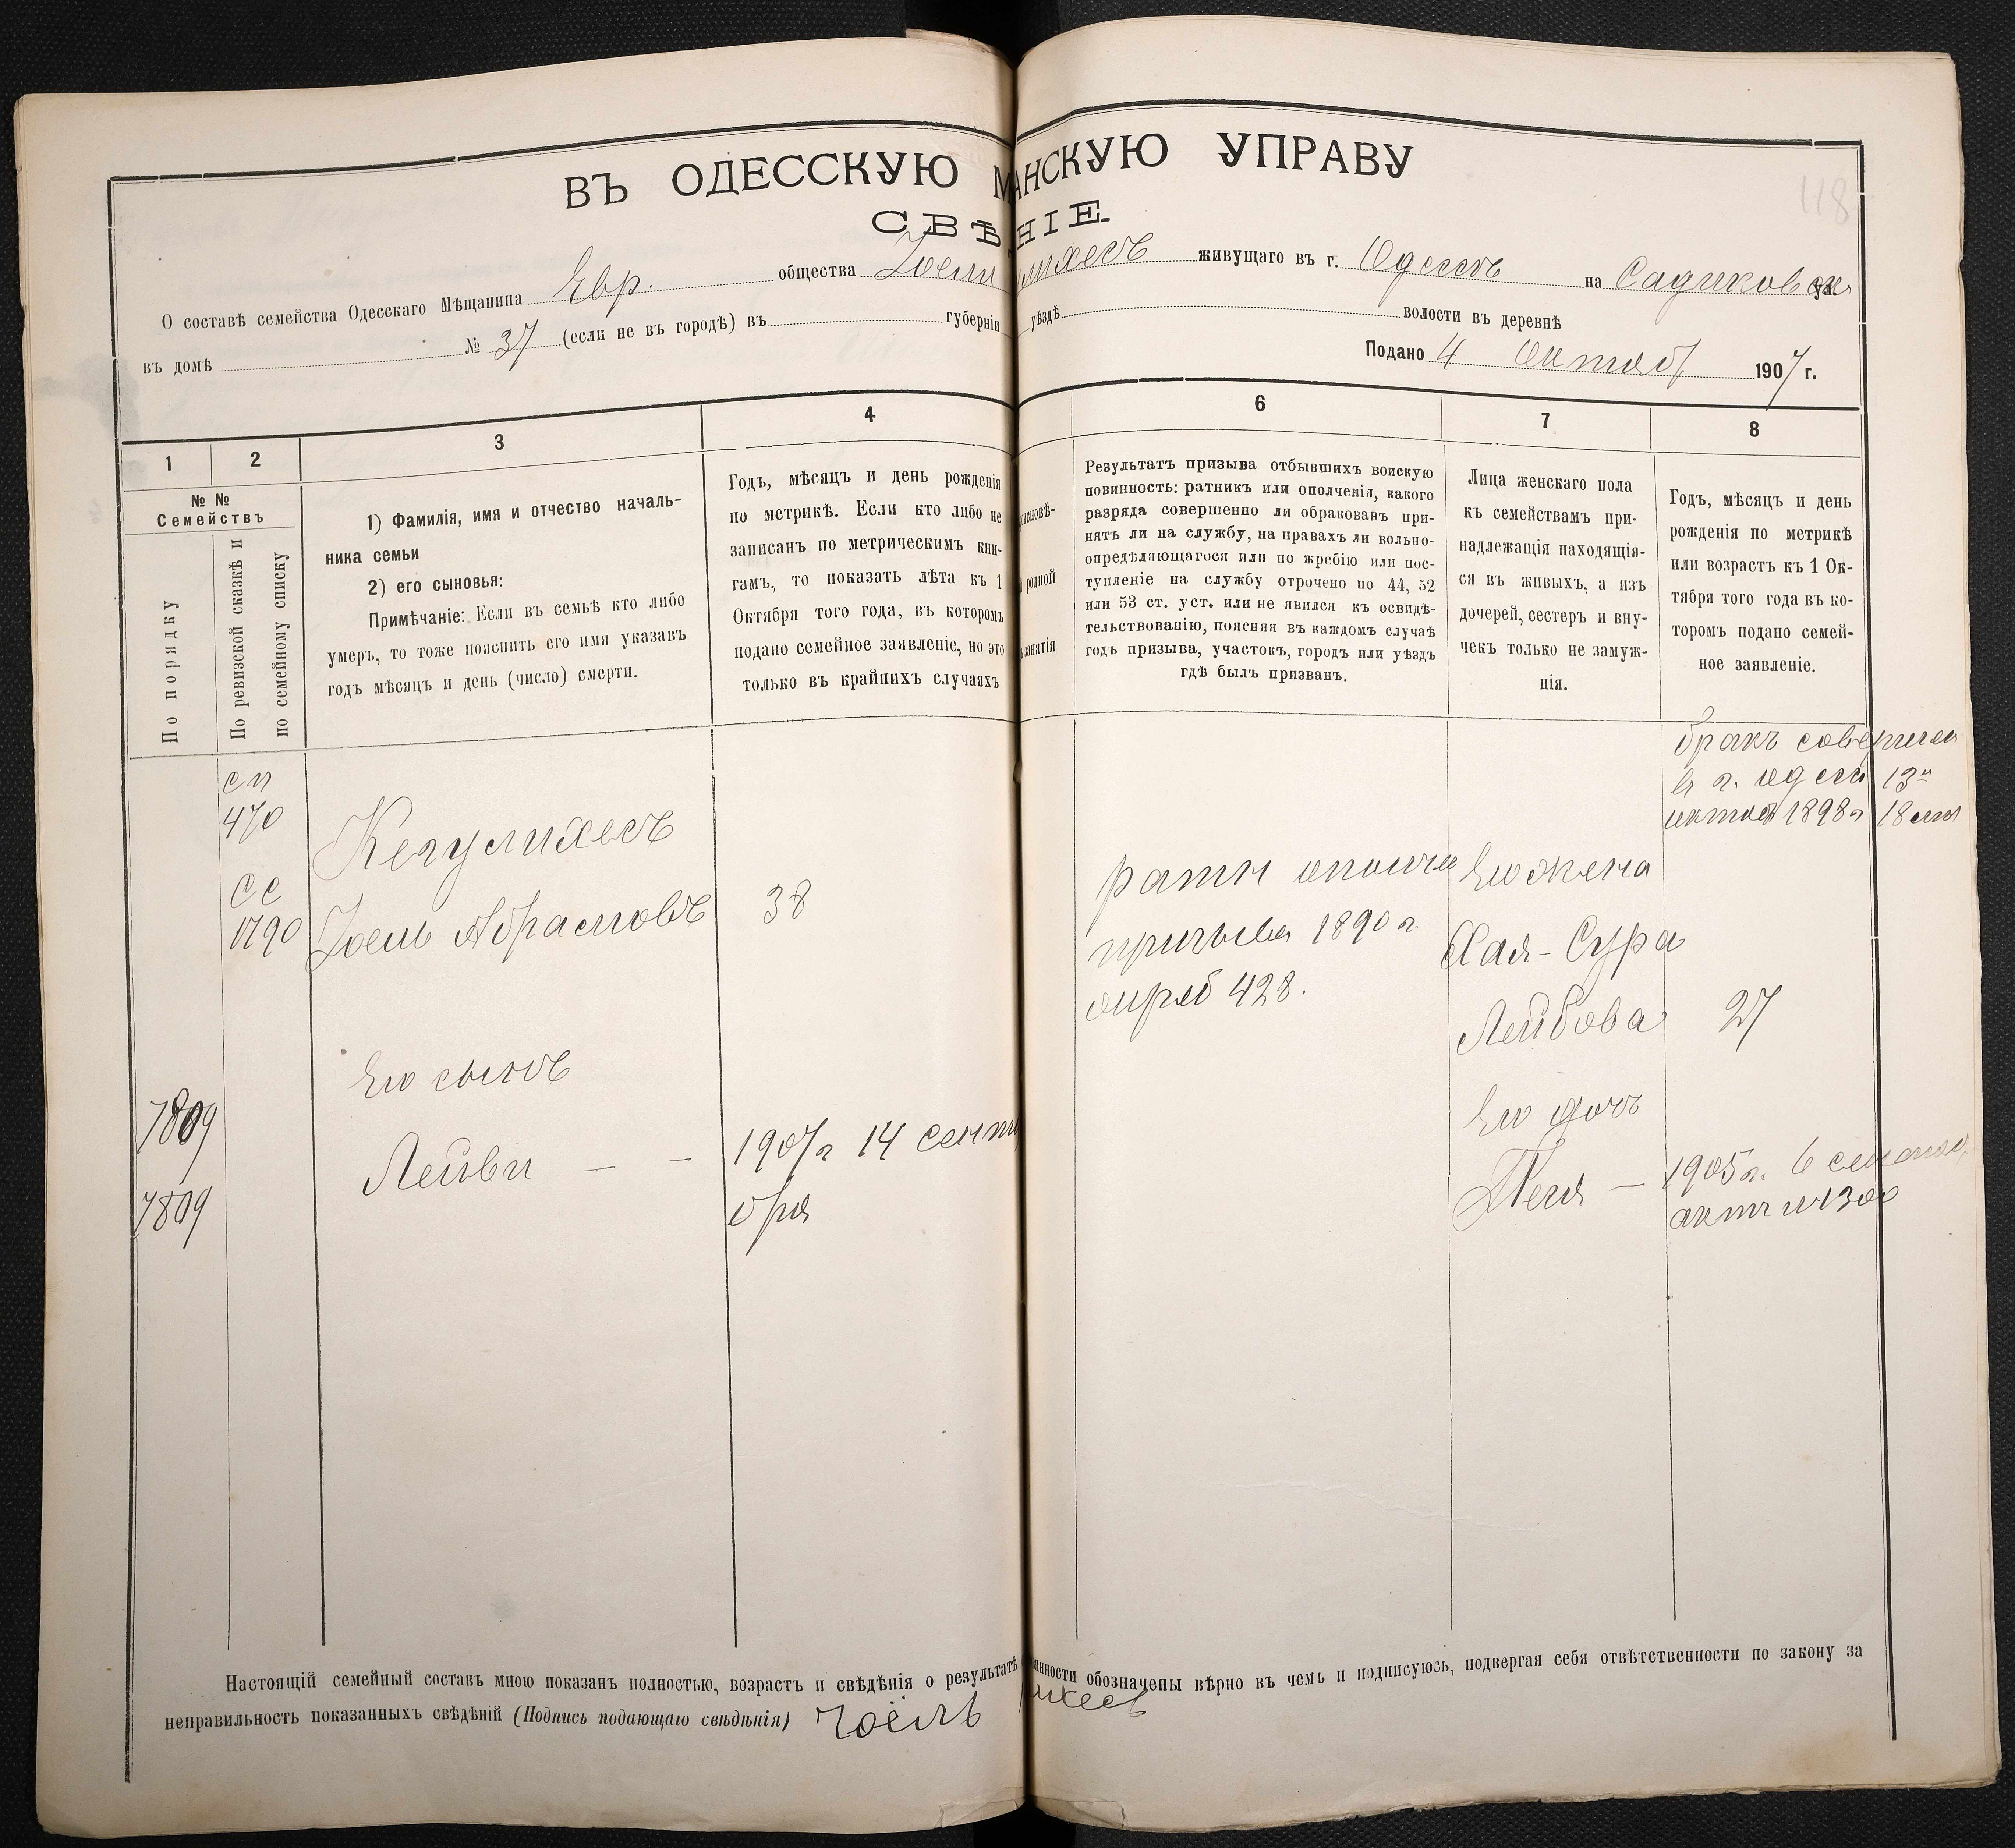 118
ВЪ ОДЕССКУЮ М АНСКУЮ УПРАВУ
СВѢ НІЕ
О составѣ семейства Одесскаго Мѣщанина Евр. общества Іоели лихесъ живущаго въ г. Одессѣ на Садиковск ул.
въ домѣ № 37 (если не въ городѣ) въ губерніи уѣздѣ волости въ деревнѣ
Подано 4 Октяб 1907 г.
1 2 3 4 6 7 8
№ №
Семействъ
По порядку
По ревизской сказкѣ и
по семейному списку
1) Фамилія, имя и отчество началь-
ника семьи
2) его сыновья:
Примѣчаніе: Если въ семьѣ кто либо
умеръ, то тоже пояснить его имя указавъ
годъ мѣсяцъ и день (число) смерти.
Годъ, мѣсяцъ и день рожденія
по метрикѣ. Если кто либо не
записанъ по метрическимъ кни-
гамъ, то показать лѣта къ 1
Октября того года, въ которомъ
подано семейное заявленіе, но это
только въ крайнихъ случаяхъ
исповѣ-
родной
занятія
Результатъ призыва отбывшихъ воискую
повинность: ратникъ или ополченія, какого
разряда совершенно ли обракованъ при-
нятъ ли на службу, на правахъ ли вольно-
опредѣляющагося или по жребію или пос-
тупленіе на службу отрочено по 44, 52
или 53 ст. уст. или не явился къ освидѣ-
тельствованію, поясняя въ каждомъ случаѣ
годь призыва, участокъ, городъ или уѣздъ
гдѣ былъ призванъ.
Лица женскаго пола
къ семействамъ при-
надлежащія находящія-
ся въ живыхъ, а изъ
дочерей, сестеръ и вну-
чекъ только не замуж-
нія.
Годъ, мѣсяцъ и день
рожденія по метрикѣ
или возрастъ къ 1 Ок-
тября того года въ ко-
торомъ подано семей-
ное заявленіе.
бракъ совершен
в г. одессѣ 13
октяб 1898 г 18
сп
470
се
1790
Кегулихесъ
Іоель Абрамовъ 38
ратн ополчен
призыва 1890 г.
жреб 428.
Его жена
Хая-Сура
Лейбова 27
Его сынъ
7809
Лейви — — 1907 г 14 сентя
бря
7809
Его дочь
Песя — 1905 г. 6
актъ №1300
Настоящій семейный составъ мною показанъ полностью, возрастъ и свѣдѣнія о результатѣ инности обозначены вѣрно въ чемъ и подписуюсь, подвергая себя отвѣтственности по закону за
неправильность показанныхъ свѣдѣній (Подпись подающаго свѣдѣнія) Іоель ихесъ